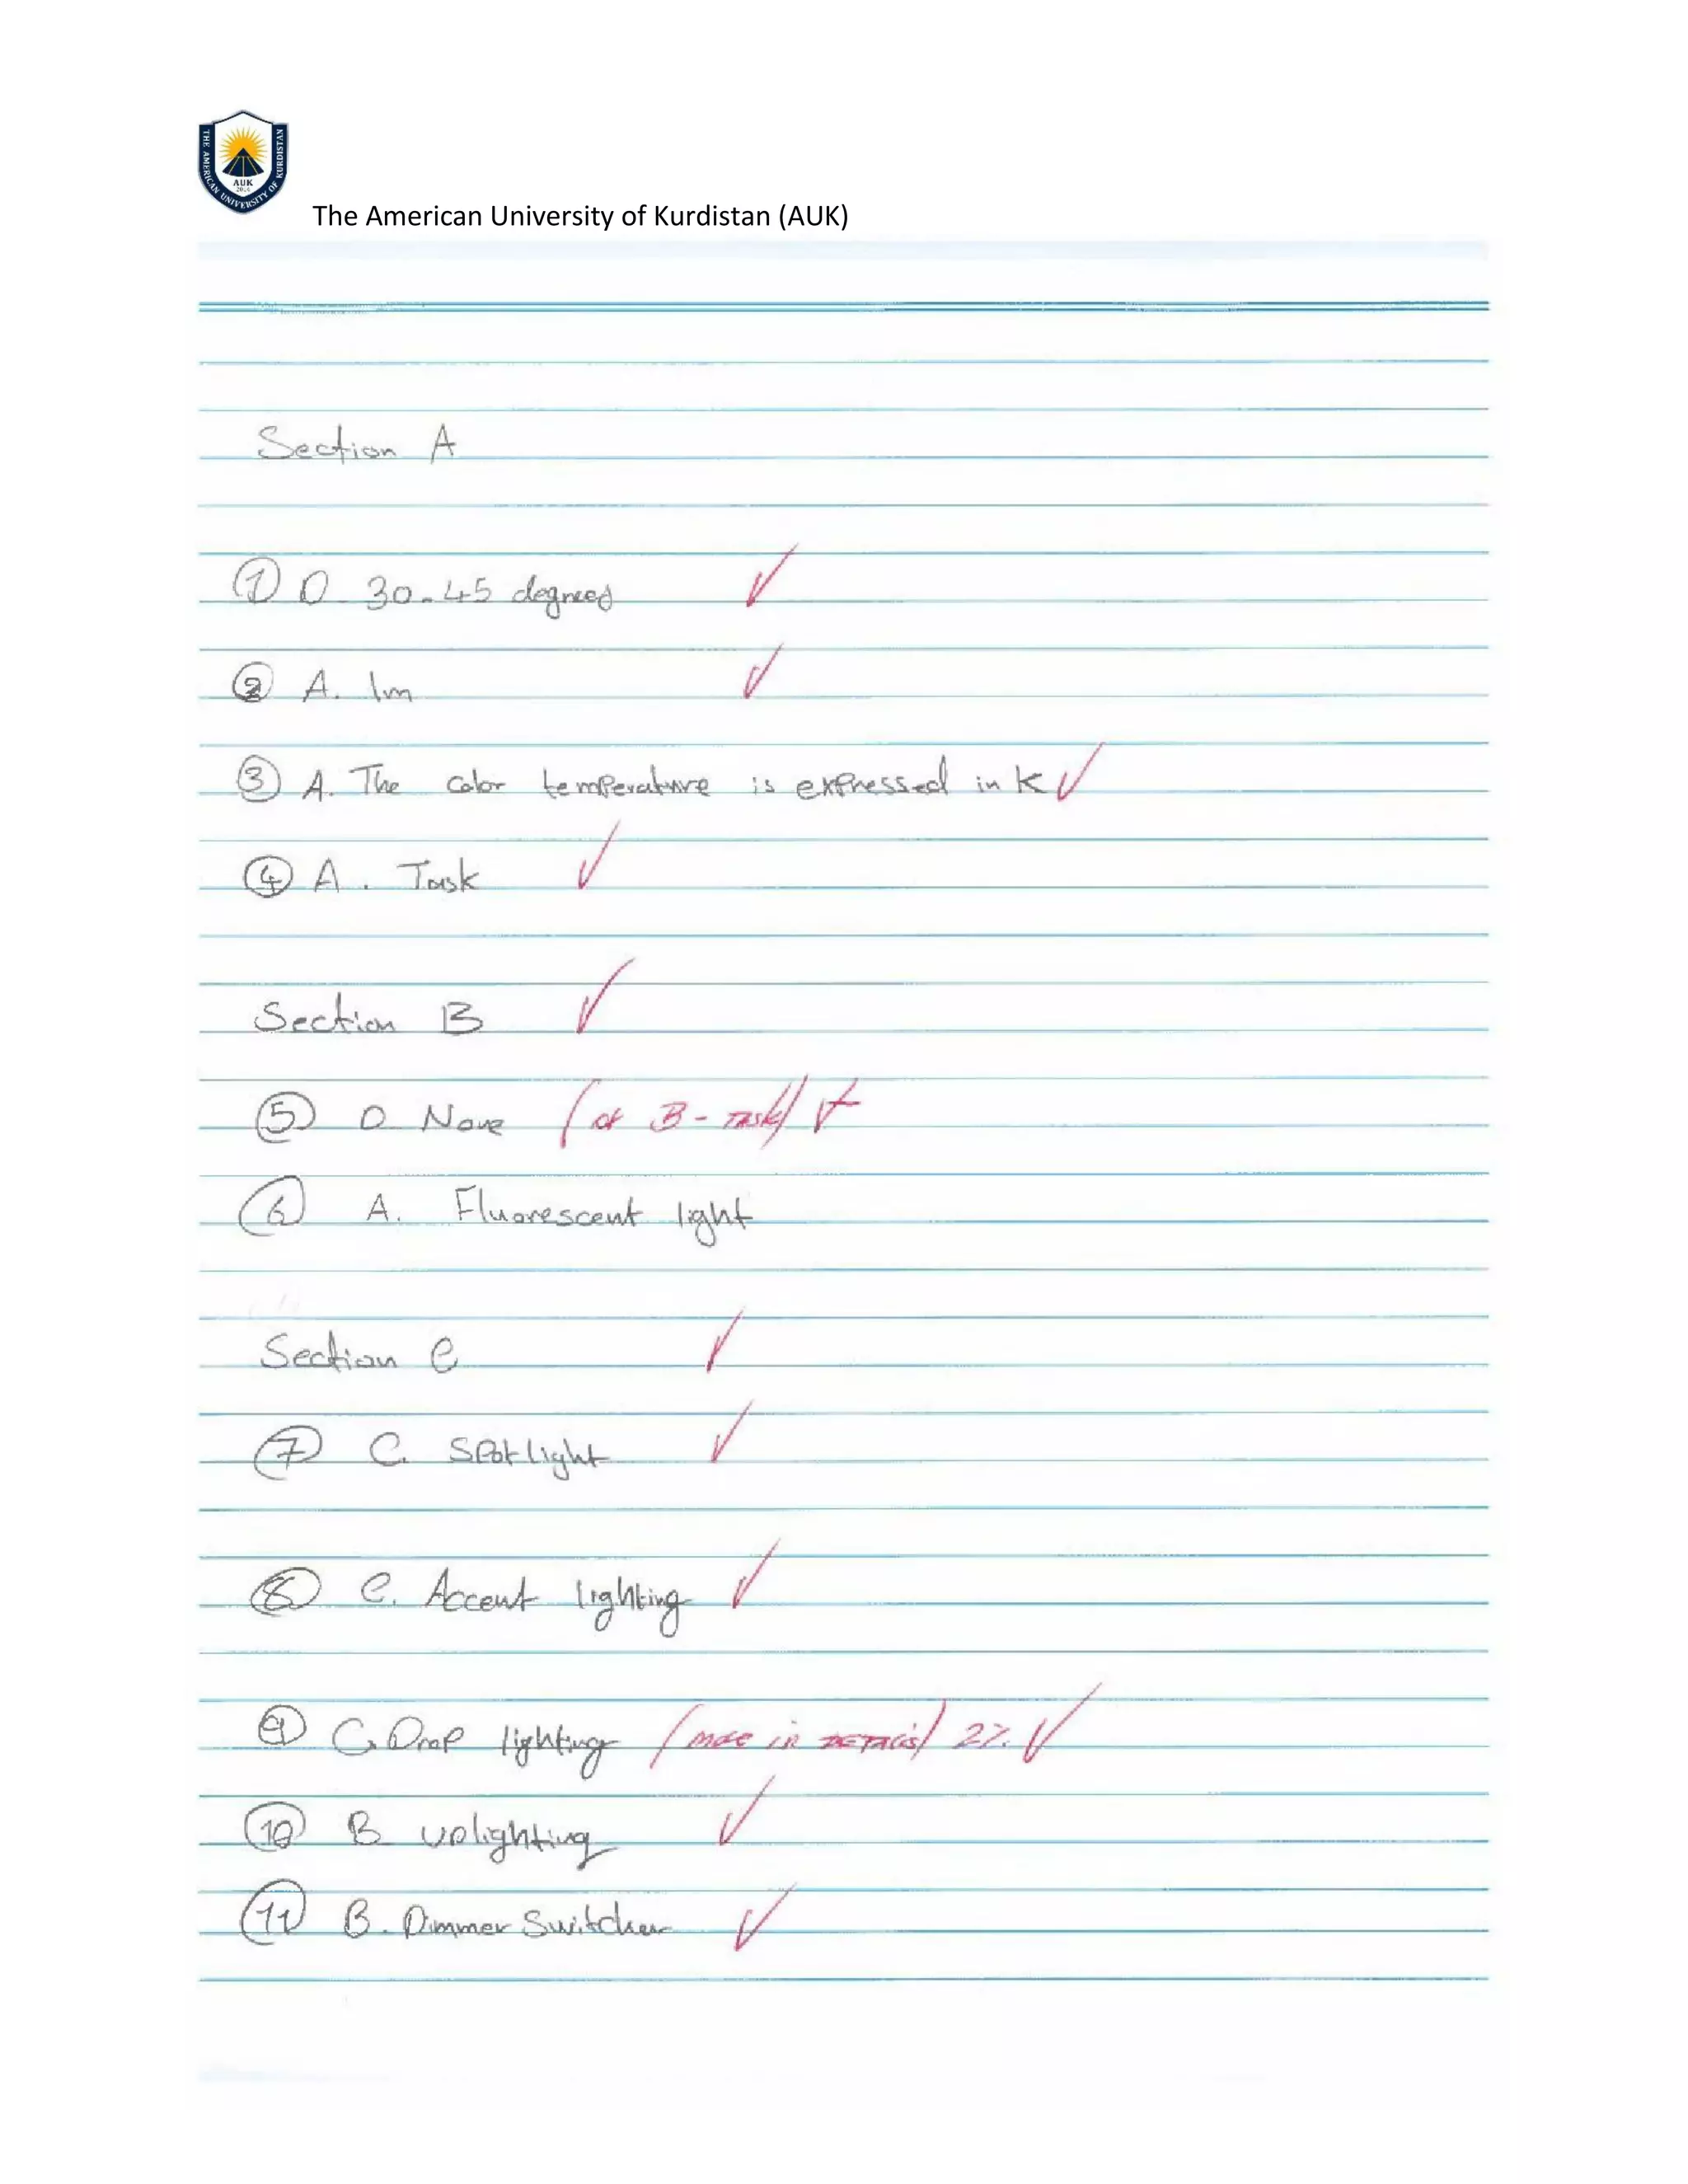 THE AMERICAN UNIVERSITY OF KURDISTAN
AUK
2014
The American University of Kurdistan (AUK)
Section A
1 D 30-45 degrees
2 A. lm
3 A. The color temperature is expressed in K
4 A. Task
Section B
5 D None (or B - TASK)
6 A. Fluorescent light
Section C
7 C. Spotlight
8 C. Accent lighting
9 C. Drop lighting (more in DETAILS) 2%
10 B uplighting
11 B. Dimmer Switcher